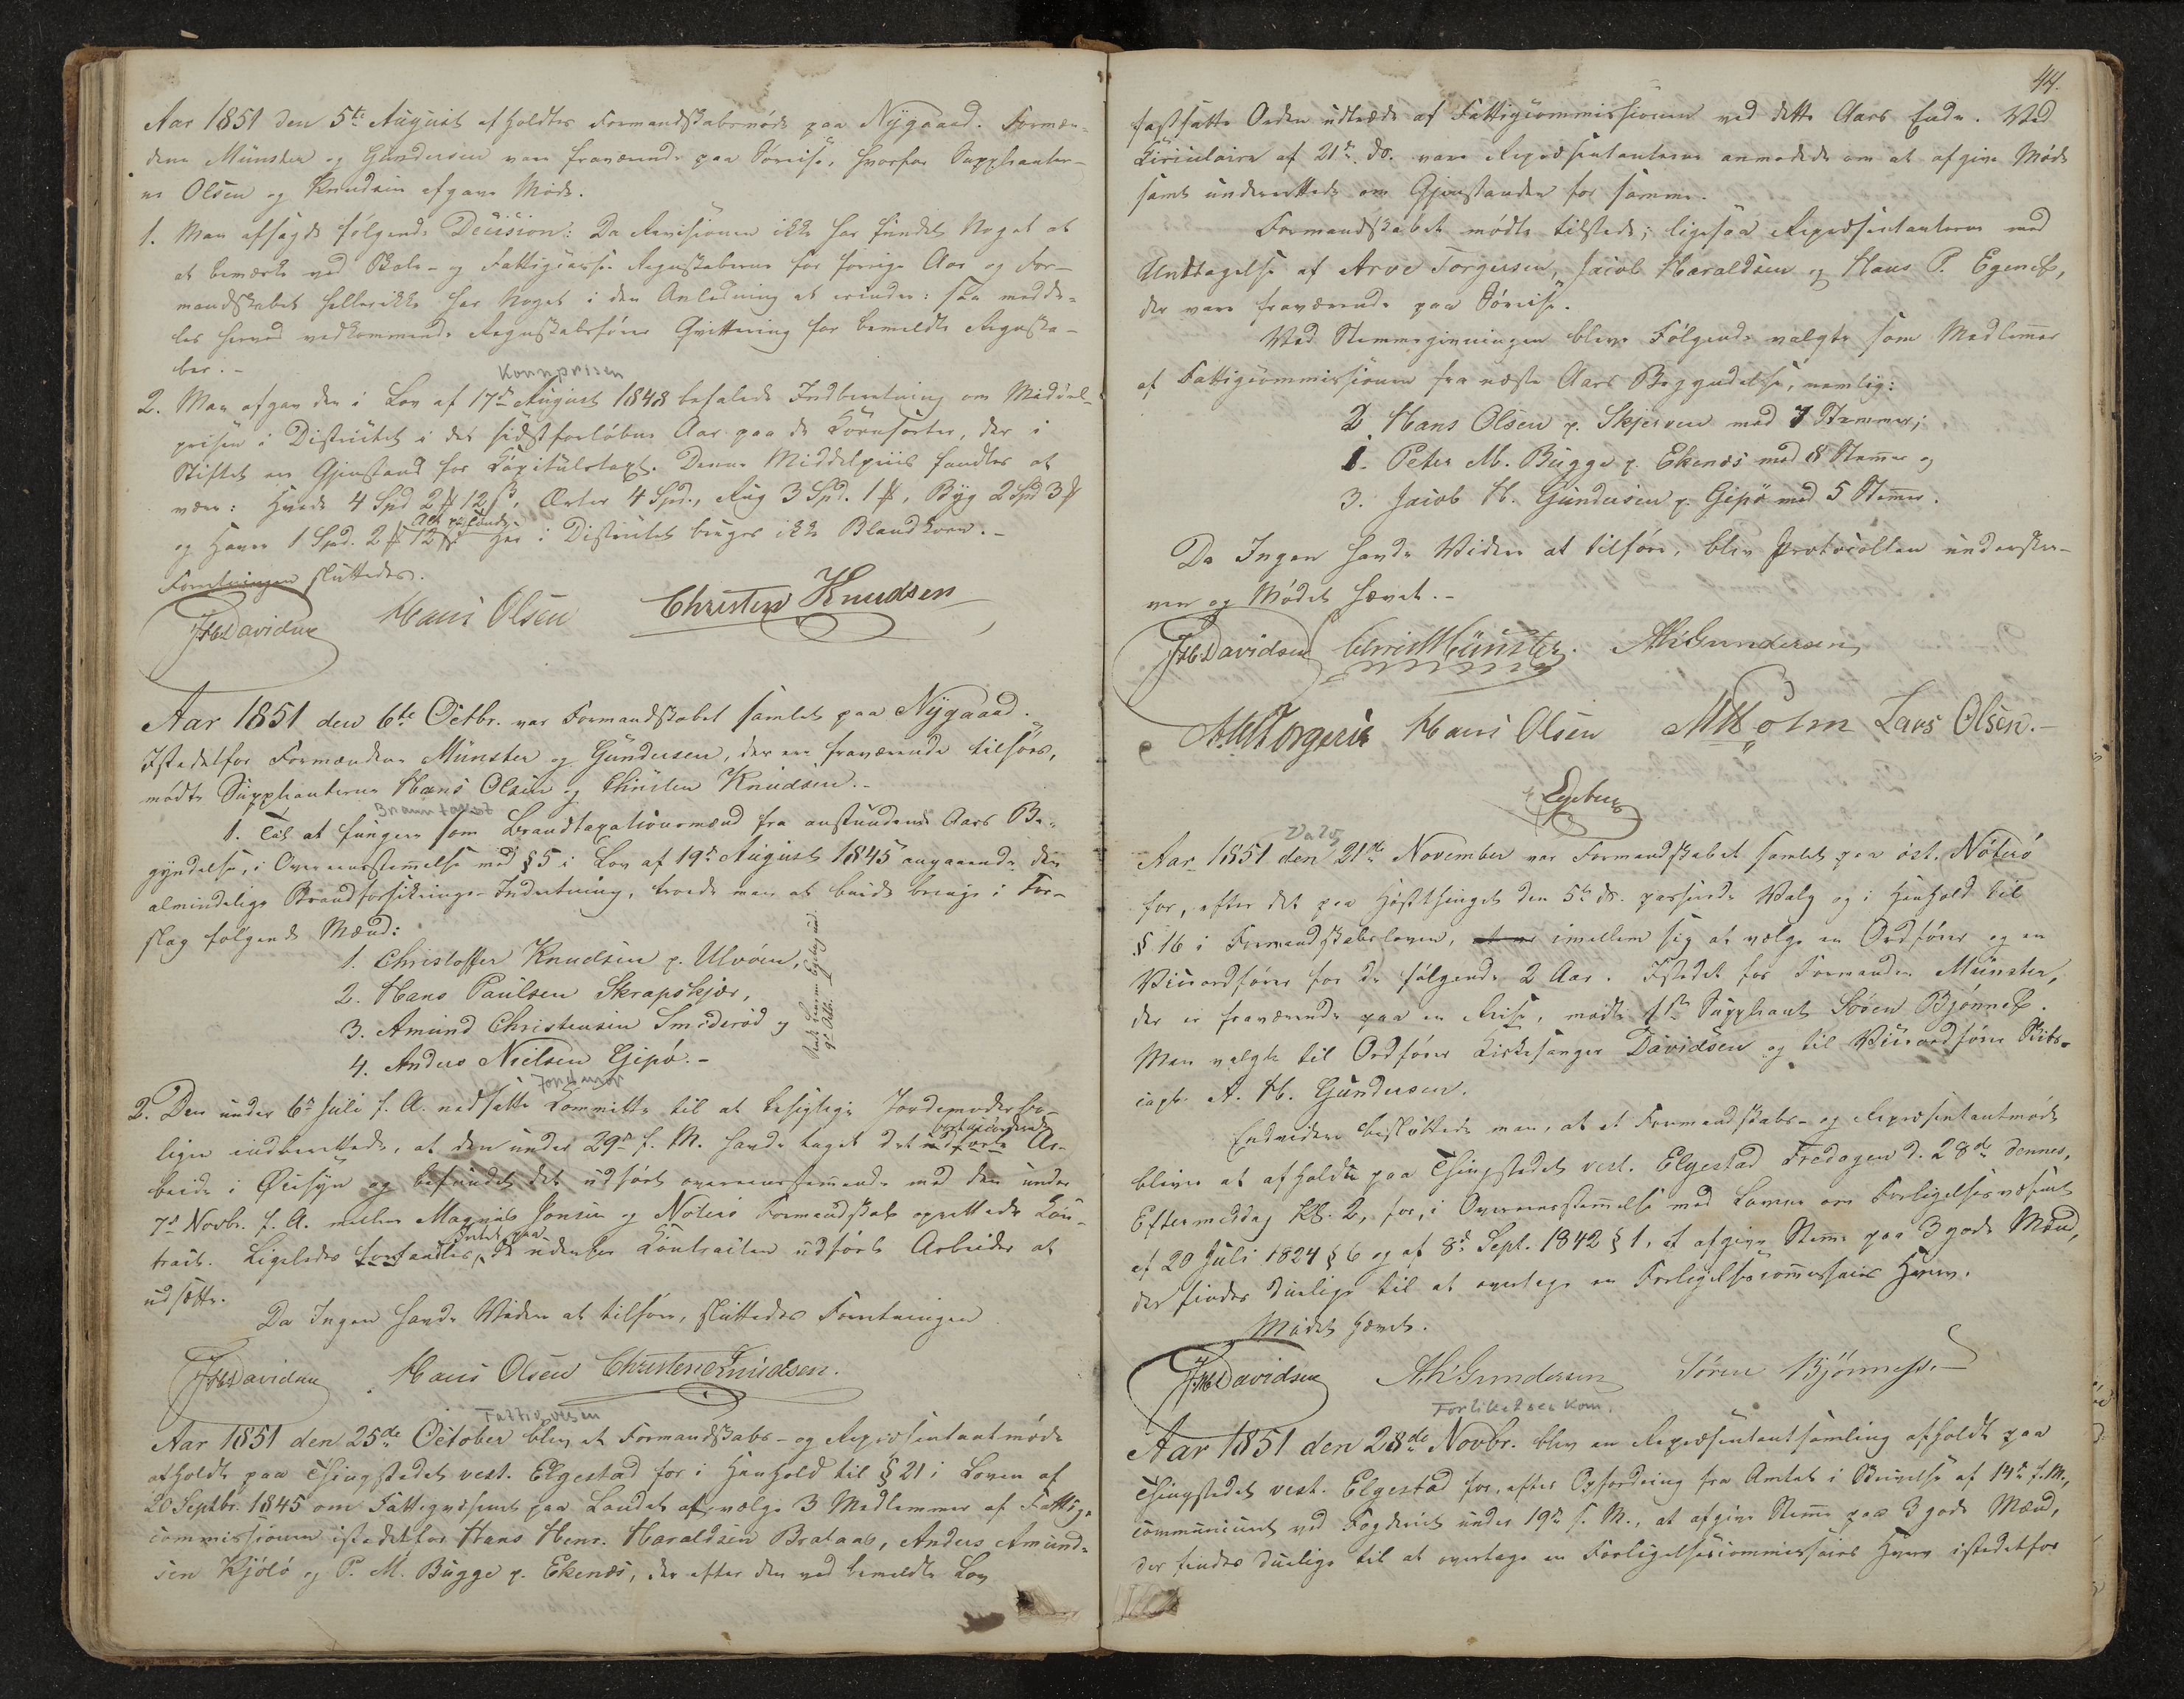 Aar 1851 den 5te August afholdtes Formandskabsmøde paa Nygaard. Formæn-
dene Münster og Gundersen vare fraværende paa Søreise, hvorfor Supplianter-
ne Olsen og Knudsen afgave Møde.
1. Man afsagde følgende Decision: Da Revisionen ikke har fundet Noget at
at bemærke ved Skole- og Fattigcasse Regnskaberne for forrige Aar og For-
mandskabet hellerikke har Noget i den Anledning at erindre: saa medde-
les herved vedkommende Regnskabsfører Qvittering for bemeldte Regnska-
ber. -
Kornprisen
2. Man afgav den i Lov af 17de August 1848 befalede Indberetning om Middel-
prisen i Districtet i det sidstforløbne Aar paa de Kornsorter, der i
Stiftet ere Gjenstand for Kapitulstaxt. Denne Middelpriis fandtes at
være: Hvede 4 Spd 2 # 12 ß, Erter 4 Spd., Rug 3 Spd. 1 #, Byg 2 Spd 3 #
og Havre 1 Spd. 2 # 12 ß Her i Districtet bruges ikke Blandkorn. -
Forretningen sluttedes.
JHDavidsen Hans Olsen Christen Knudsen
Aar 1851 den 6te Octbr. var Formandskabet samlet paa Nygaard.
Istedetfor Formændene Münster og Gundersen, der ere fraværende tilsøes,
mødte Supplianterne Hans Olsen og Christen Knudsen. -
Branntakst
1. Til at fungere som Brandtaxationsmænd fra anstundende Aars Be-
gyndelse, i Overeensstemmelse med § 5 i Lov af 19de August 1845 angaaende den
almindelige Brandforsikrings-Indretning, troede man at burde bringe i For-
slag følgende Mænd:
1. Christoffer Knudsen p. Ulvøen,
2. Hans Paulsen Skrapskjær,
3. Amund Christensen Smiderød og
4. Anders Nielsen Gipø. -
Jordmor
2. Den under 6te Juli f. A. nedsatte Committe til at besigtige Jordemoderbo-
ligen indberettede, at den under 29de f. M. havde taget det udførte Ar-
beide i Øiesyn og befundet det udført overeensstemmende med den under
7de Novbr. f. A. mellem Magnus Jensen og Nøterø Formandskab oprettede Con-
tract. Ligeledes fandtes Intet paa de udenfor Contracten udførte Arbeider at
udsætte.
Da Ingen havde Videre at tilføre, sluttedes Forretningen
JHDavidsen Hans Olsen Christen Knudsen.
Fattigvesen
Aar 1851 den 25de October blev et Formandskabs- og Repræsentantmøde
afholdt paa Thingstedet vest. Elgestad for i Henhold til § 21 i Loven af
20 Septbr. 1845 om Fattigvæsenet paa Landet at vælge 3 Medlemmer af Fattig-
commissionen istedetfor Hans Henr. Haraldsen Brataas, Anders Amund-
sen KjøLø og P. M. Bugge p. Ekenæs, der efter den ved bemeldte Lov
44.
fastsatte Orden udtræde af Fattigcommissionen ved dette Aars Ende. Ved
Circulaire af 21de ds. vare Repræsentanterne anmodede om at afgive Møde
samt underrettede om Gjenstanden for samme.
Formandskabet mødte tilstede; ligesaa Repræsentanterne med
Undtagelse af Arve Torgersen, Jacob Haraldsen og Hans P. Egenes,
der vare fraværende paa Søreise.
Ved Stemmegivningen bleve Følgende valgte som Medlemmer
af Fattigcommissionen fra næste Aars Begyndelse, nemlig:
2 Hans Olsen p. Skjerven med 7 Stemmer;
1. Peter M. Bugge p. Ekenæs med 8 Stemmer og
3. Jacob H. Gundersen p. Gipø med 5 Stemmer.
Da Ingen havde Videre at tilføre, blev Protocollen underskre-
ven og Mødet hævet. -
JHDavidsen Chris Münster. AHGundersen
Hans Olsen Holm Lars Olsen. -
Valg
Aar 1851 den 21de November var Formandskabet samlet paa øst. Nøterø
for, efter det paa Høstthinget den 5te ds. passerede Valg og i Henhold til
§ 16 i Formandskabsloven, imellem sig at vælge en Ordfører og en
Viceordfører for de følgende 2 Aar. Istedet for Formanden Münster,
der er fraværende paa en Reise, mødte 1ste Suppliant Søren Bjønnes.
Man valgte til Ordfører Kirkesanger Davidsen og til Viceordfører Skibs-
capt. A. H. Gundersen.
Endvidere besluttede man, at et Formandskabs- og Repræsentantmøde
bliver at afholde paa Thingstedet vest. Elgestad Fredagen d. 28de dennes,
Eftermiddag Kl. 2, for, i Overeensstemmelse med Lovene om Forligelsesvæsenet
af 20 Juli 1824 § 6 og af 8de Sept. 1842 § 1, at afgive Stemme paa 3 gode Mænd,
der findes duelige til at overtage en Forligelsescommissairs Hverv.
Mødet hævet.
JHDavidsen AHGundersen Søren Bjønnes. -
Forlikelses kom.
Aar 1851 den 28de Novbr. blev en Repræsentantsamling afholdt paa
Thingstedet vest. Elgestad for, efter Opfordring fra Amtet i Skrivelse af 14de f. M.,
communiceret ved Fogderiet under 19de f. M., at afgive Stemme paa 3 gode Mænd,
der findes duelige til at overtage en Forligelsescommissairs Hverv istedetfor